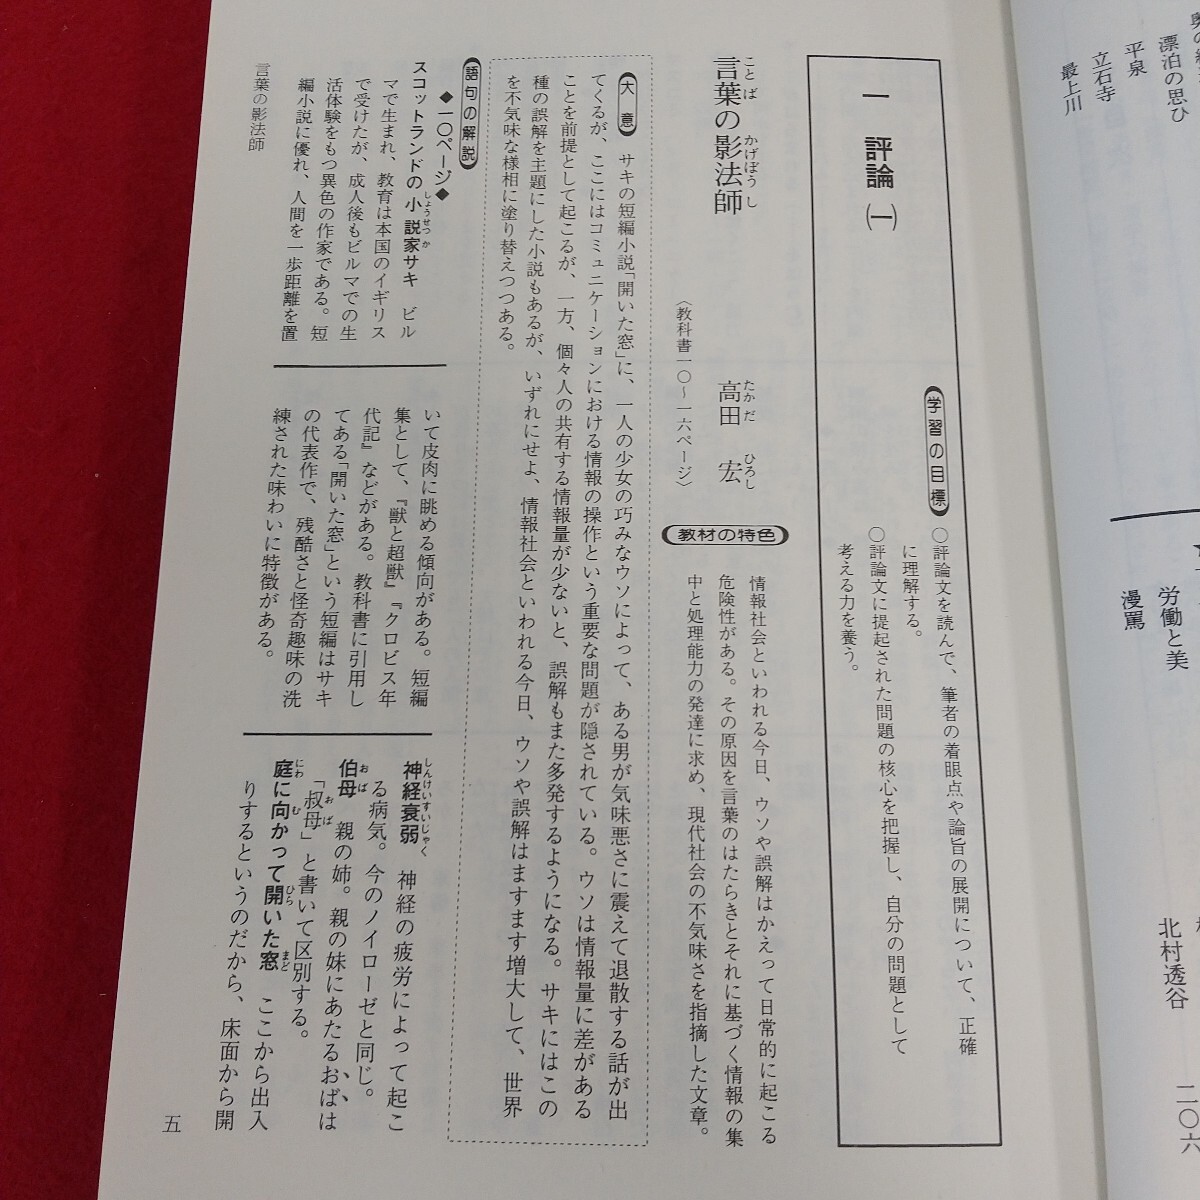 奥の細
漂泊の思ひ
平泉
立石寺
最上川
労働と美
漫罵
北村透谷
二〇六
一 評論 (一)
学習の目標
○評論文を読んで、筆者の着眼点や論旨の展開について、正確
に理解する。
○評論文に提起された問題の核心を把握し、自分の問題として
考える力を養う。
言葉の影法師
ことば かげぼうし
高田 宏
たかだ ひろし
〈教科書一〇~一六ページ〉
教材の特色
情報社会といわれる今日、ウソや誤解はかえって日常的に起こる
危険性がある。その原因を言葉のはたらきとそれに基づく情報の集
中と処理能力の発達に求め、現代社会の不気味さを指摘した文章。
大意 サキの短編小説「開いた窓」に、一人の少女の巧みなウソによって、ある男が気味悪さに震えて退散する話が出
てくるが、ここにはコミュニケーションにおける情報の操作という重要な問題が隠されている。ウソは情報量に差がある
ことを前提として起こるが、一方、個々人の共有する情報量が少ないと、誤解もまた多発するようになる。サキにはこの
種の誤解を主題にした小説もあるが、いずれにせよ、情報社会といわれる今日、ウソや誤解はますます増大して、世界
を不気味な様相に塗り替えつつある。
語句の解説
◆一〇ページ◆
スコットランドの小説家サキ ビル
しょうせつか
マで生まれ、教育は本国のイギリス
で受けたが、成人後もビルマでの生
活体験をもつ異色の作家である。短
編小説に優れ、人間を一歩距離を置
いて皮肉に眺める傾向がある。短編
集として、『獣と超獣』『クロビス年
代記』などがある。教科書に引用し
てある「開いた窓」という短編はサキ
の代表作で、残酷さと怪奇趣味の洗
練された味わいに特徴がある。
神経衰弱 神経の疲労によって起こ
しんけいすいじゃく
る病気。今のノイローゼと同じ。
伯母 親の姉。親の妹にあたるおばは
おば
「叔母」と書いて区別する。
おば
庭に向かって開いた窓 ここから出入
にわ む ひら まど
りするというのだから、床面から開
言葉の影法師
五